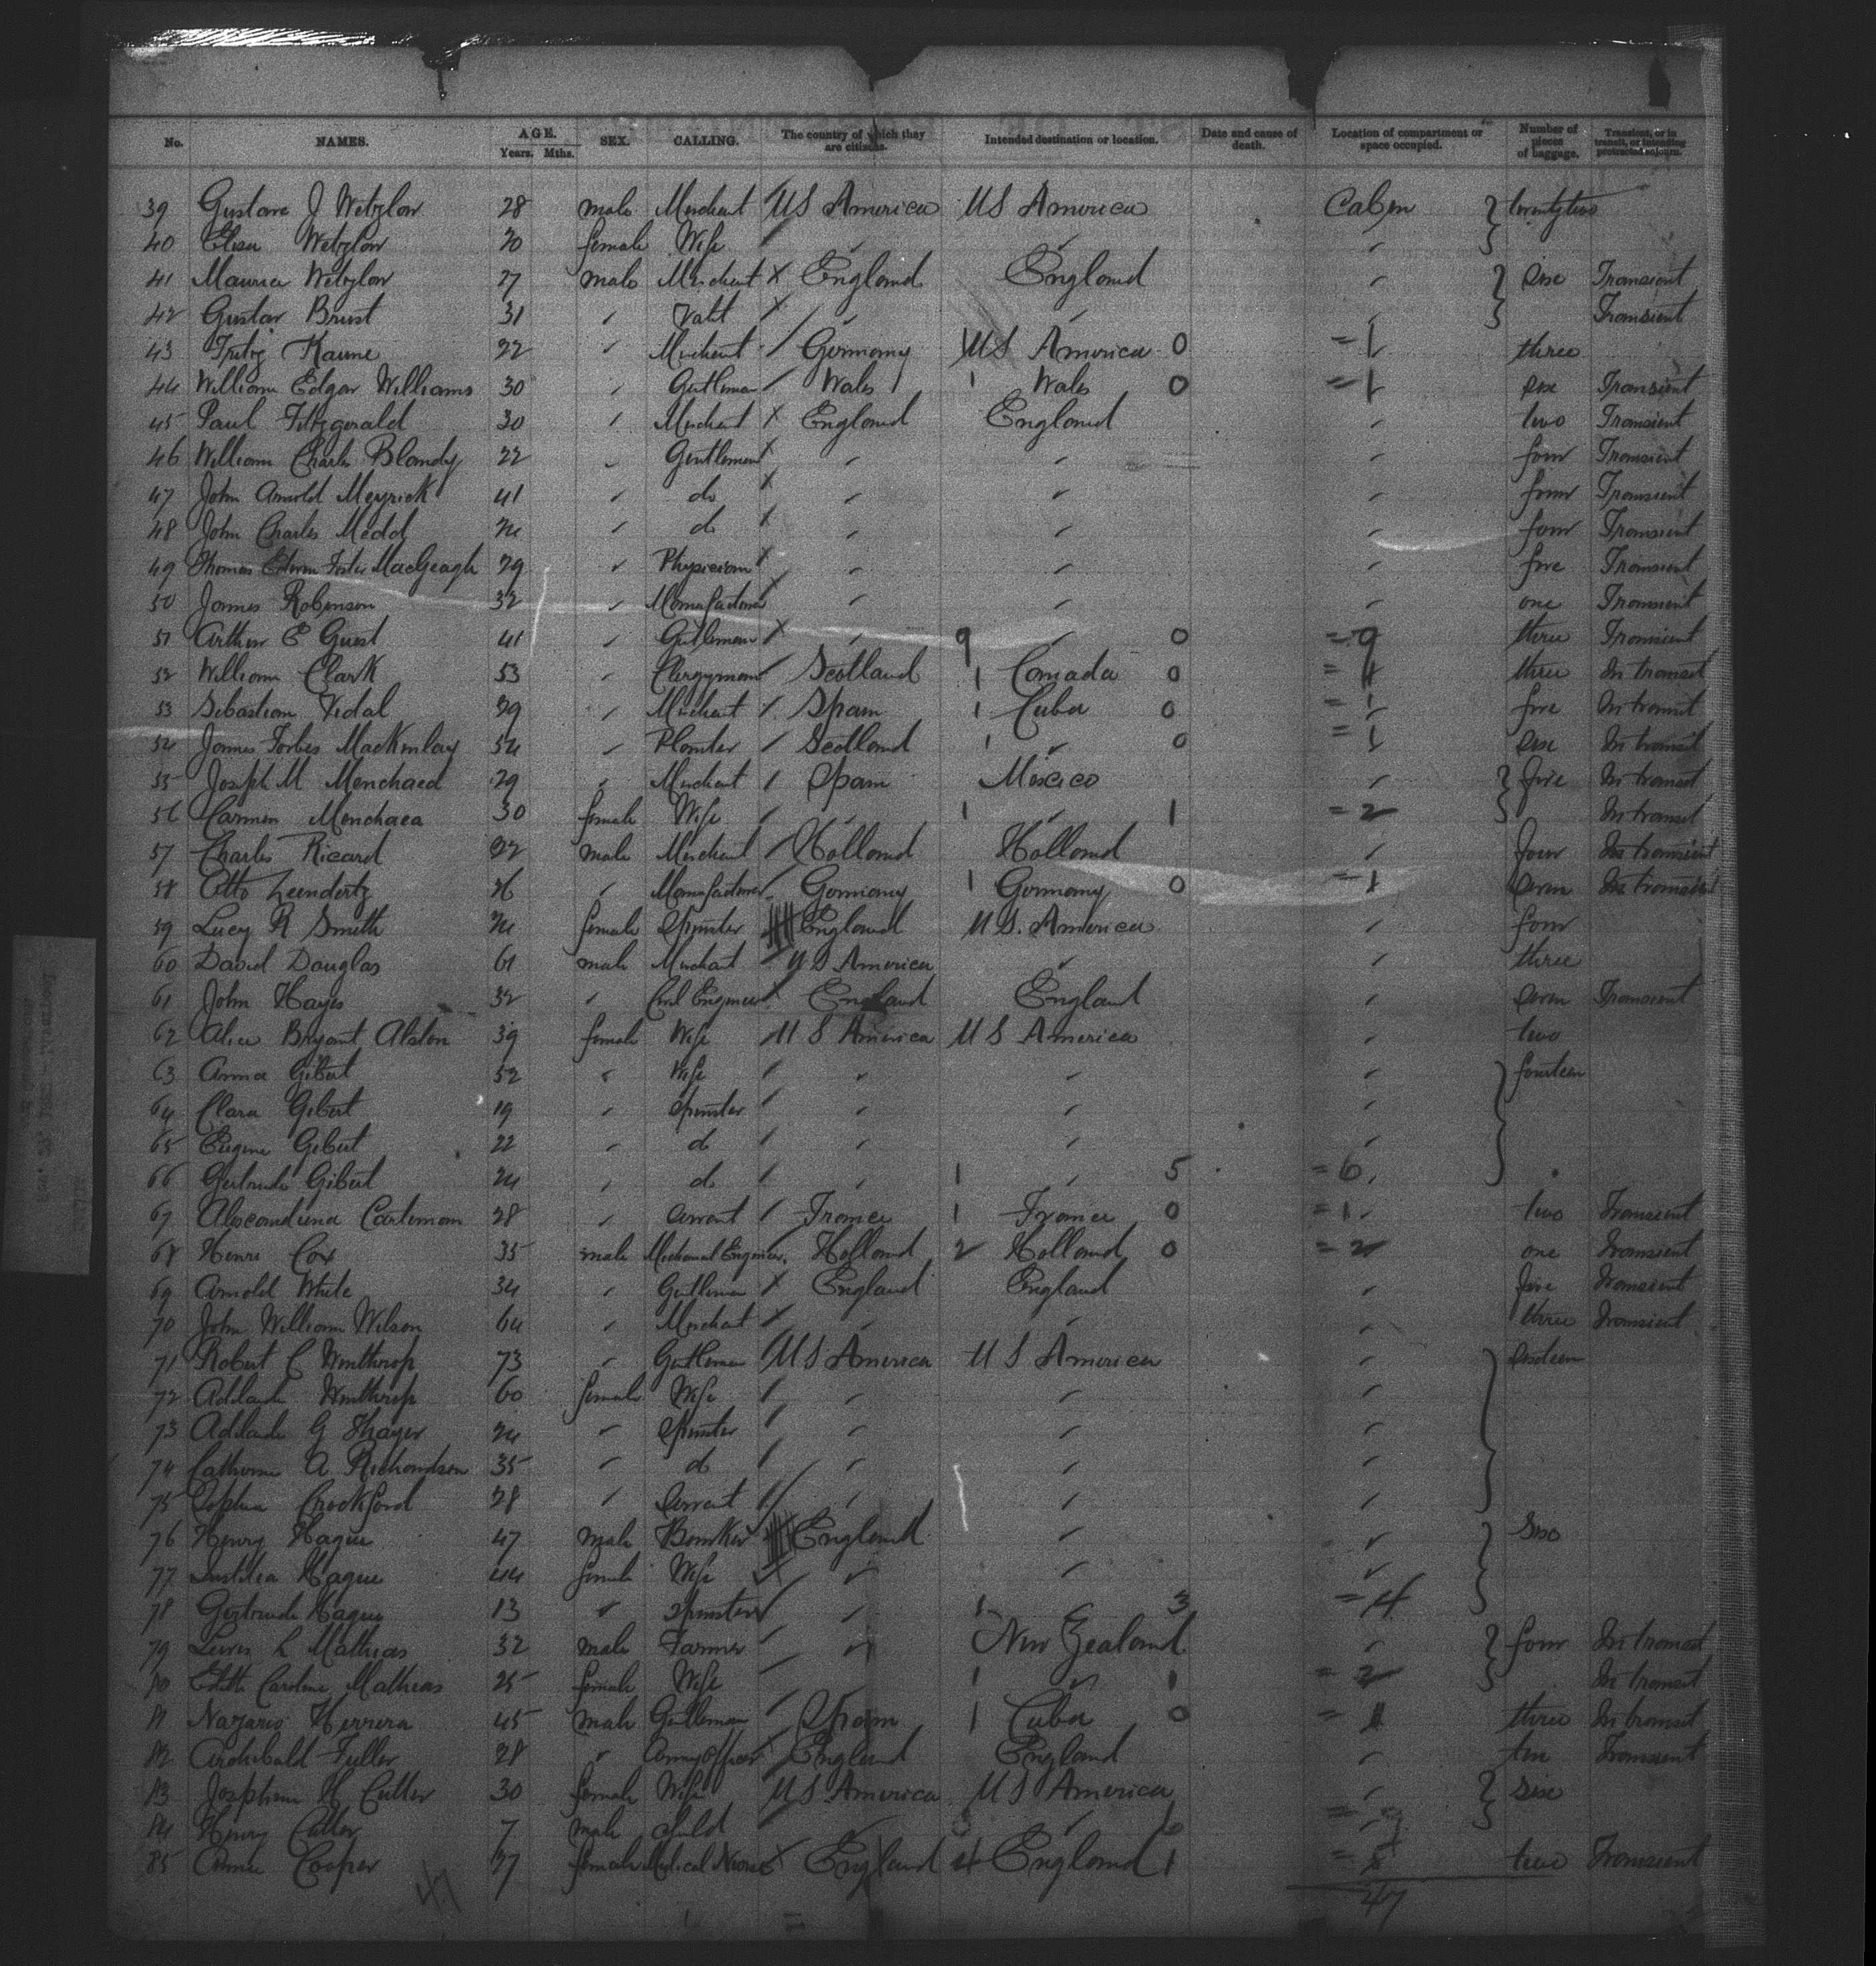 No. NAMES. AGE. Years. Mths. SEX. CALLING. The country of which they are citizens. Intended destination or location. Date and cause of death. Location of compartment or space occupied. Number of pieces of baggage. Transient, or in transit, or intending protracted sojourn.
39 Gustave J Wetzlar 28 male Merchant / US America US America Cabin } twentytwo
40 Elisa Wetzlar 20 female Wife / " " "
41 Maurice Wetzlar 27 male Merchant X England England " } six Transient
42 Gustav Brust 31 " Valet X " " " Transient
43 Fritz Kaune 22 " Merchant / Germany 1 US America 0 =1 three
44 William Edgar Williams 30 " Gentleman / Wales 1 Wales 0 =1 six Transient
45 Paul Fitzgerald 30 " Merchant X England England " two Transient
46 William Charles Blandy 22 " Gentleman X " " " four Transient
47 John Arnold Meyrick 41 " do X " " " four Transient
48 John Charles Medd 24 " do X " " " four Transient
49 Thomas Foster MacGeagh 29 " Physician X " " " five Transient
50 James Robinson 32 " Manufacturer X " " " one Transient
51 Arthur E Guest 41 " Gentleman X " 9 " 0 =9 three Transient
52 William Clark 53 " Clergyman / Scotland 1 Canada 0 =1 three In transit
53 Sebastian Vidal 29 " Merchant / Spain 1 Cuba 0 =1 five In transit
54 James Forbes MacKinlay 54 " Planter / Scotland 1 " 0 =1 six In transit
55 Joseph M Menchaca 29 " Merchant / Spain Mexico " } five In transit
56 Carmen Menchaca 30 female Wife / " 1 " 1 =2 In transit
57 Charles Ricard 22 male Merchant / Holland Holland " four In transient
58 Otto Leendertz 26 " Manufacturer / Germany 1 Germany 0 =1 seven In transient
59 Lucy R Smith 24 female Spinster England U.S. America " four
60 David Douglas 61 male Merchant / U S America " " three
61 John Hayes 32 " Civil Engineer X England England " seven Transient
62 Alice Bryant Alston 39 female Wife / U S America U S America " two
63 Anna Gibert 52 " Wife / " " " } fourteen
64 Clara Gibert 19 " Spinster / " " "
65 Eugene Gibert 22 " do / " " "
66 Gertrude Gibert 24 " do / " 1 " 5 =6
67 Alexandrina Carteman 28 " Servant / France 1 France 0 =1 two Transient
68 Henri Cox 35 male Mechanical Engineer Holland 2 Holland 0 =2 one Transient
69 Arnold White 34 " Gentleman X England England " five Transient
70 John William Wilson 64 " Merchant X " " " three Transient
71 Robert C Winthrop 73 " Gentleman / U S America U S America " } sixteen
72 Adelaide Winthrop 60 female Wife / " " "
73 Adelaide G Thayer 24 " Spinster / " " "
74 Catherine A Richardson 35 " do / " " "
75 Sophia Crockford 28 " Servant // " " "
76 Henry Hague 47 male Banker England " " } six
77 Hague 44 female Wife " " "
78 Gertrude Hague 13 " Spinster / " 1 " 3 =4
79 Lewis L Mathias 32 male Farmer / " New Zealand " } four In transit
80 Edith Caroline Mathias 25 female Wife / 1 " 1 =2 In transit
81 Nazario Herrera 45 male Gentleman / Spain 1 Cuba 0 =1 three In transit
82 Archibald Fuller 28 " Army Officer X England England " ten Transient
83 Josephine H Cutter 30 female Wife / U S America U S America " } six
84 Henry Cutter 7 male child / " "
85 Cooper 27 female Medical Nurse X England 4 England 1 two Transient
47 47